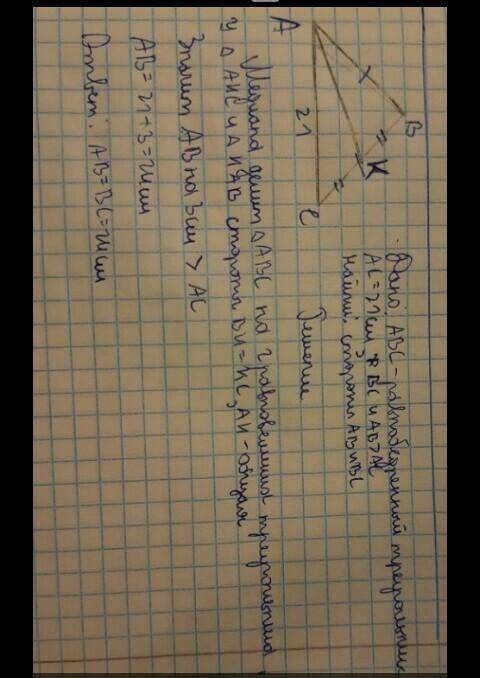 Дано: ABC - равнобедренный треугольник
AC = 21 см, BC и AB > AC
Найти: стороны AB и BC
A
B
K
C
21
Решение
Медиана делит △ ABC на 2 равновеликих треугольника,
У △ AKC и △ KAB стороны BK = KC, AK - общая
Значит AB на 3 см > AC
AB = 21 + 3 = 24 см
Ответ: AB = BC = 24 см